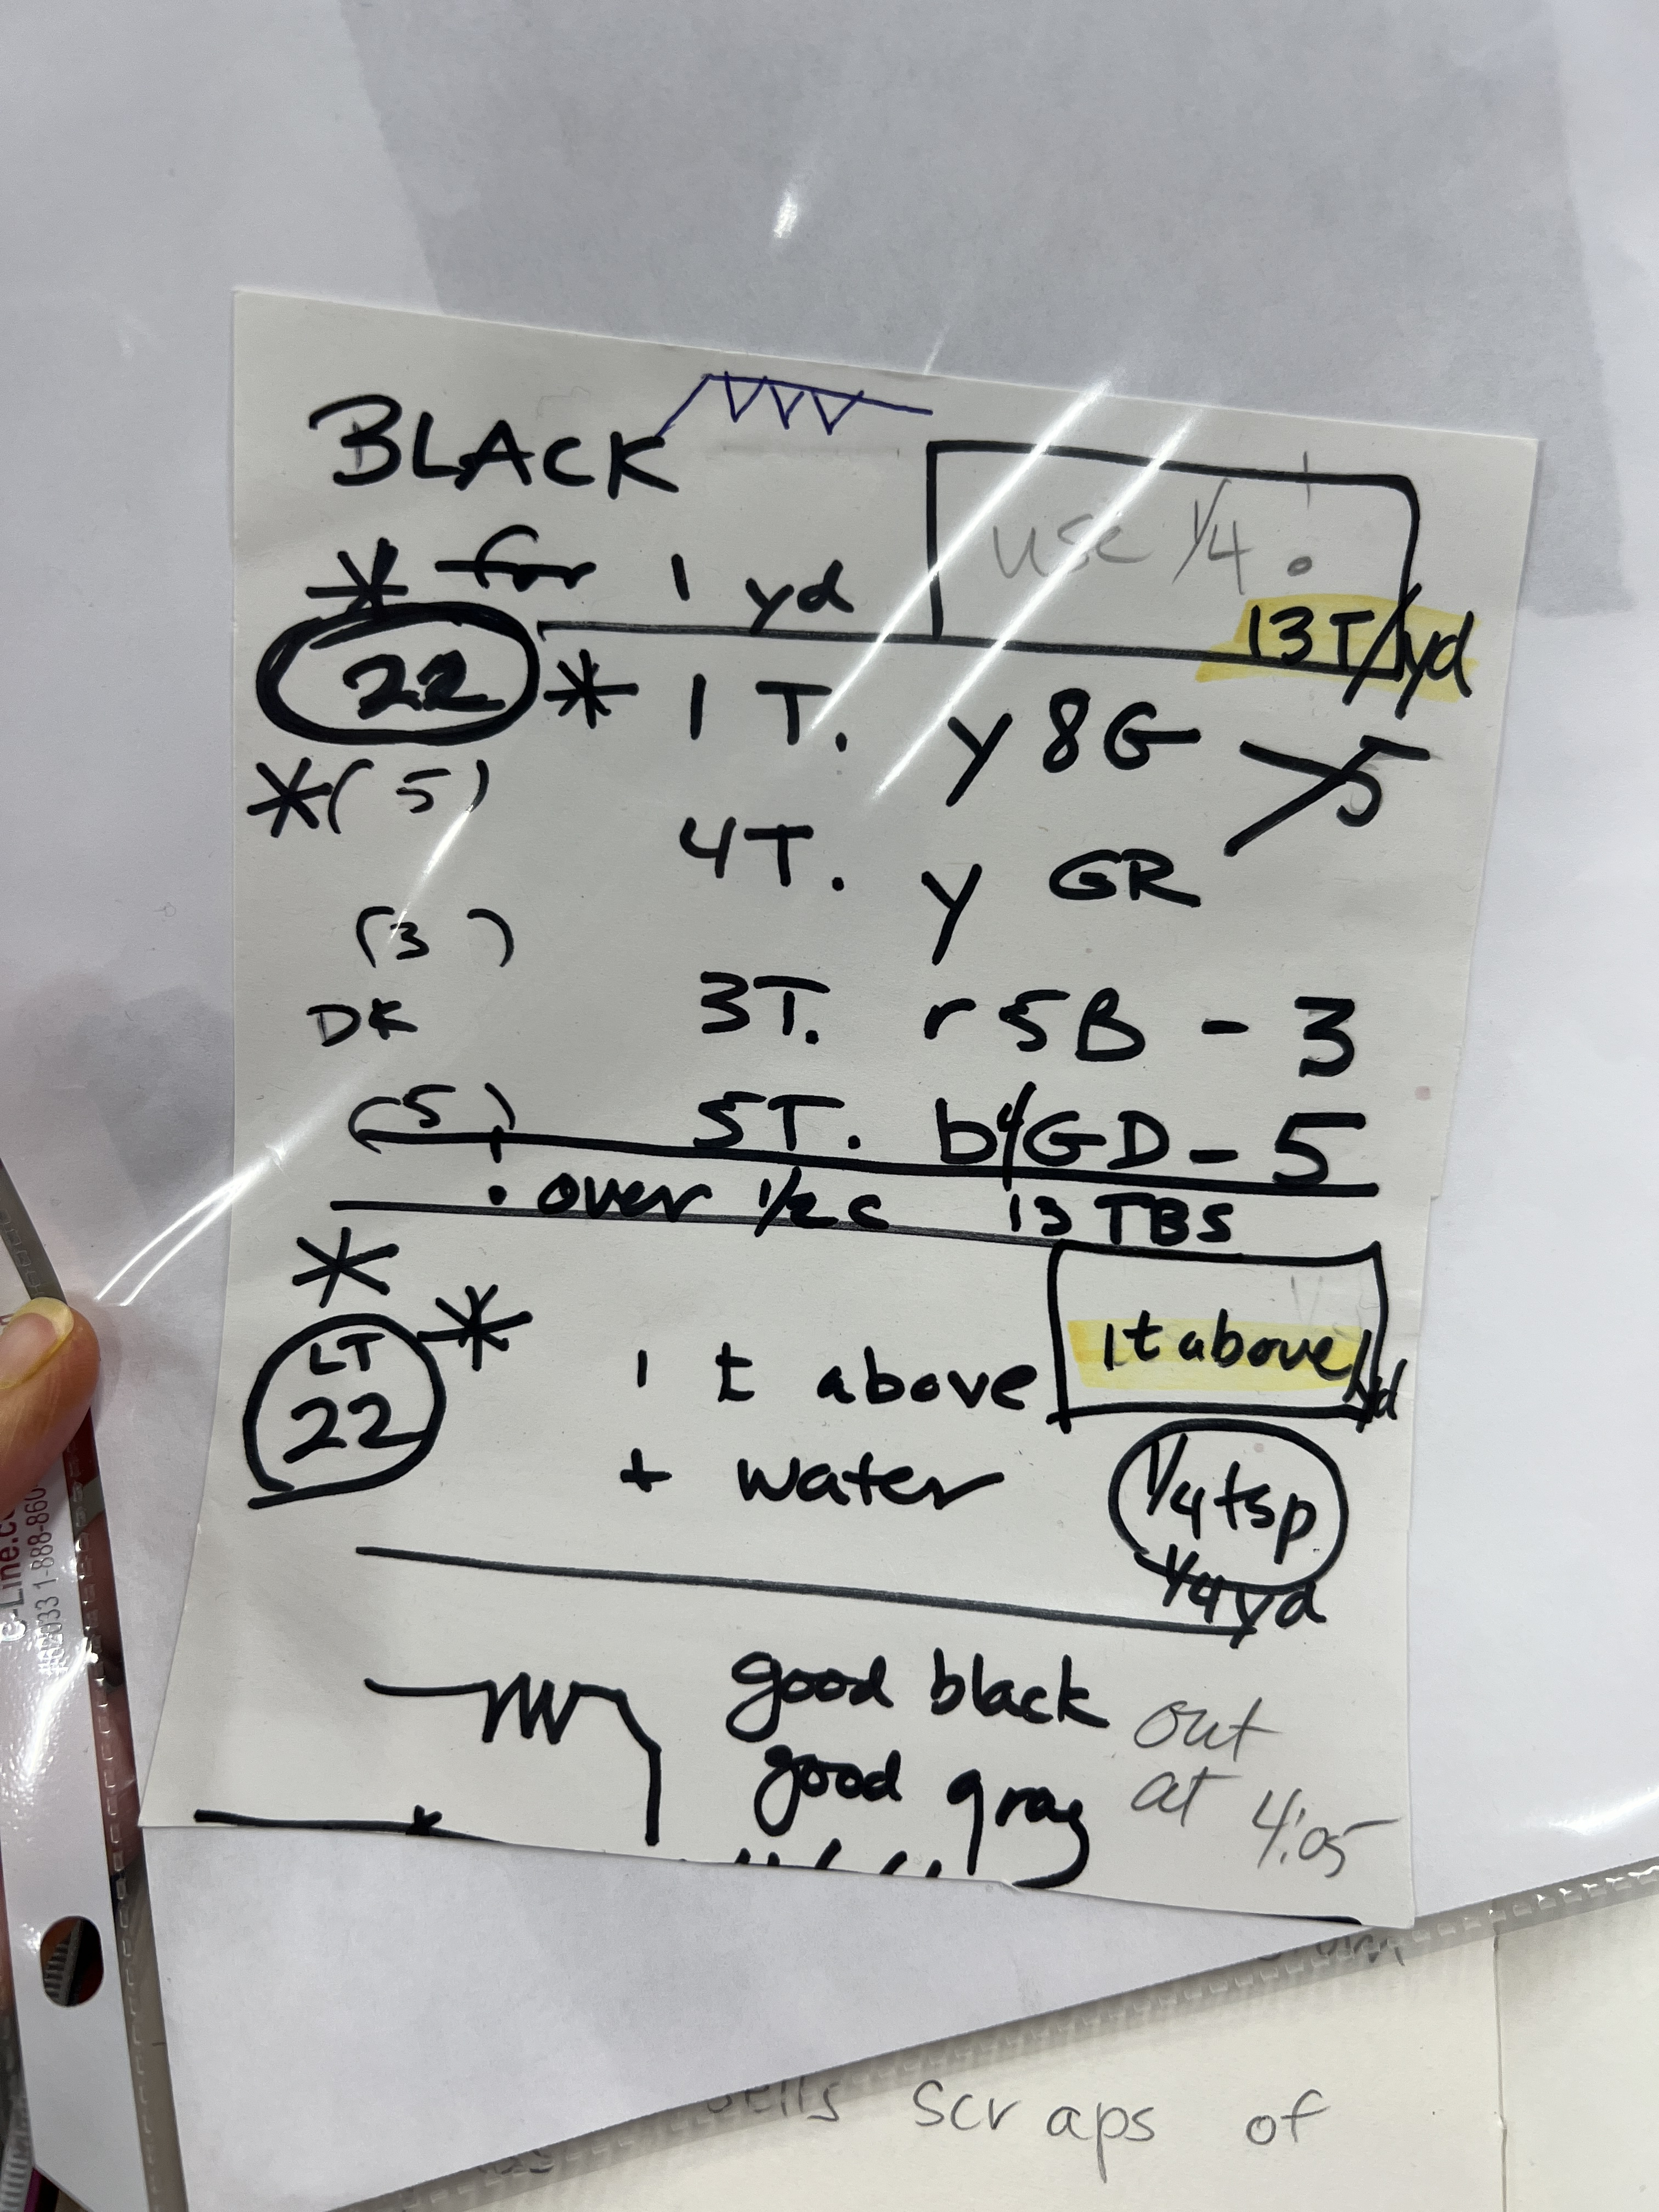 BLACK
* for 1 yd
use 1/4 .
13T/yd
22 * 1 T. y 8G > 5
*( 5)
4T. y GR
(3 )
DK 3T. r 5B - 3
(5) 5T. b4GD - 5
• over 1/2 c 13 TBS
*
LT 22 * 1 t above
1t above/yd
+ water
1/4 tsp
1/4 yd
good black
good gray
out
at 4:05
e-Line.c
1-888-860
scraps of